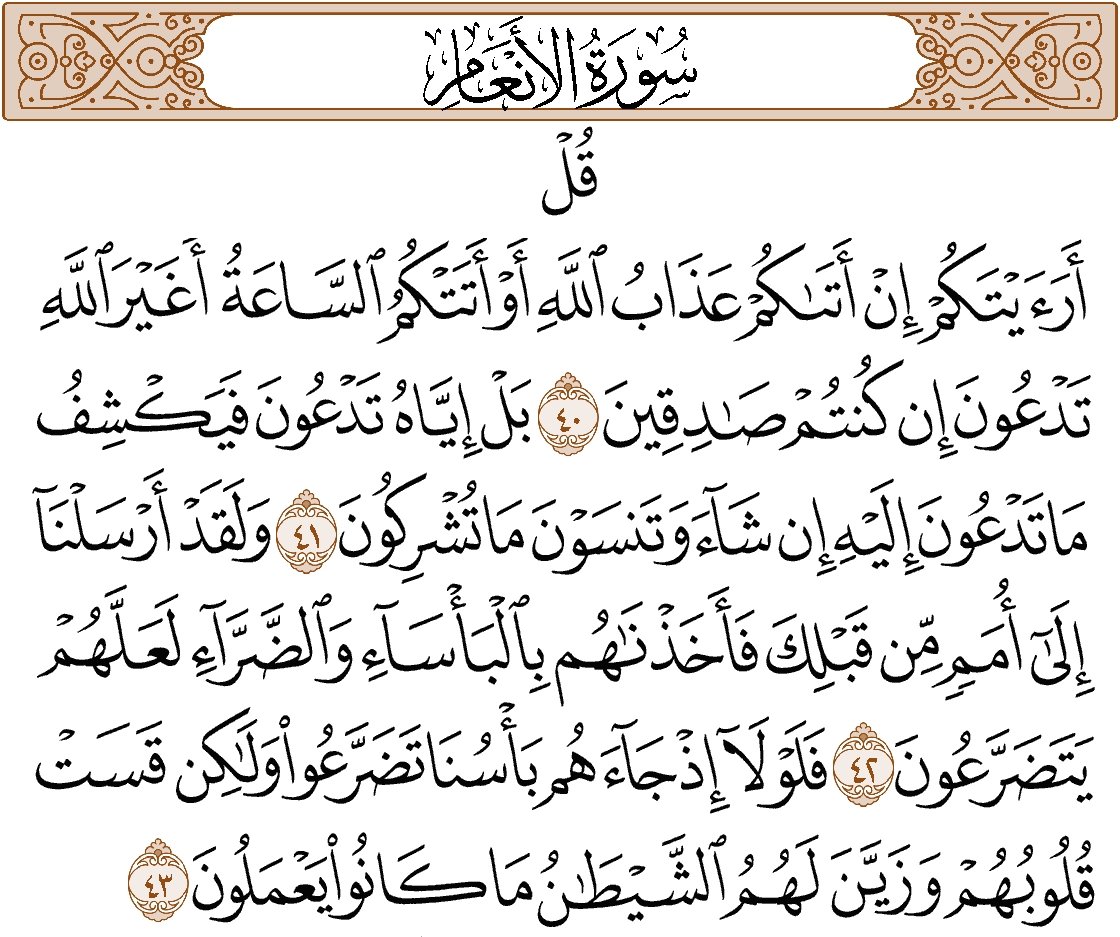 سُورَةُ الأَنْعَامِ
قُلْ
أَرَءَيْتَكُمْ إِنْ أَتَىٰكُمْ عَذَابُ ٱللَّهِ أَوْ أَتَتْكُمُ ٱلسَّاعَةُ أَغَيْرَ ٱللَّهِ
تَدْعُونَ إِن كُنتُمْ صَـٰدِقِينَ ٤٠ بَلْ إِيَّاهُ تَدْعُونَ فَيَكْشِفُ
مَا تَدْعُونَ إِلَيْهِ إِن شَآءَ وَتَنسَوْنَ مَا تُشْرِكُونَ ٤١ وَلَقَدْ أَرْسَلْنَآ
إِلَىٰٓ أُمَمٍ مِّن قَبْلِكَ فَأَخَذْنَـٰهُم بِٱلْبَأْسَآءِ وَٱلضَّرَّآءِ لَعَلَّهُمْ
يَتَضَرَّعُونَ ٤٢ فَلَوْلَآ إِذْ جَآءَهُم بَأْسُنَا تَضَرَّعُوا۟ وَلَـٰكِن قَسَتْ
قُلُوبُهُمْ وَزَيَّنَ لَهُمُ ٱلشَّيْطَـٰنُ مَا كَانُوا۟ يَعْمَلُونَ ٤٣